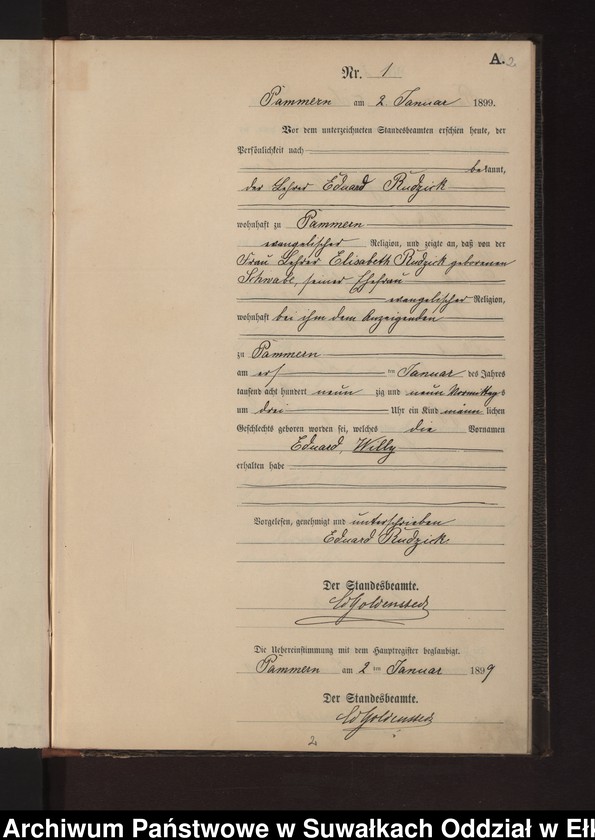 A. 2
Nr. 1
Pammern am 2. Januar 1899.
Vor dem unterzeichneten Standesbeamten erschien heute, der
Persönlichkeit nach
bekannt,
der Lehrer Eduard Rudzick
wohnhaft zu Pammern
evangelischer Religion, und zeigte an, daß von der
Frau Lehrer Elisabeth Rudzick geborenen
Schwabe, seiner Ehefrau
evangelischer Religion,
wohnhaft bei ihm dem Anzeigenden
zu Pammern
am ersten Januar des Jahres
tausend acht hundert neun zig und neun Vormittags
um drei Uhr ein Kind männlichen
Geschlechts geboren worden sei, welches die Vornamen
Eduard, Willy
erhalten habe
Vorgelesen, genehmigt und unterschrieben
Eduard Rudzick
Der Standesbeamte.
Ed Goldenstedt
Die Uebereinstimmung mit dem Hauptregister beglaubigt.
Pammern am 2 ten Januar 1899
Der Standesbeamte.
Ed Goldenstedt
2
Archiwum Państwowe w Suwałkach Oddział w Eł